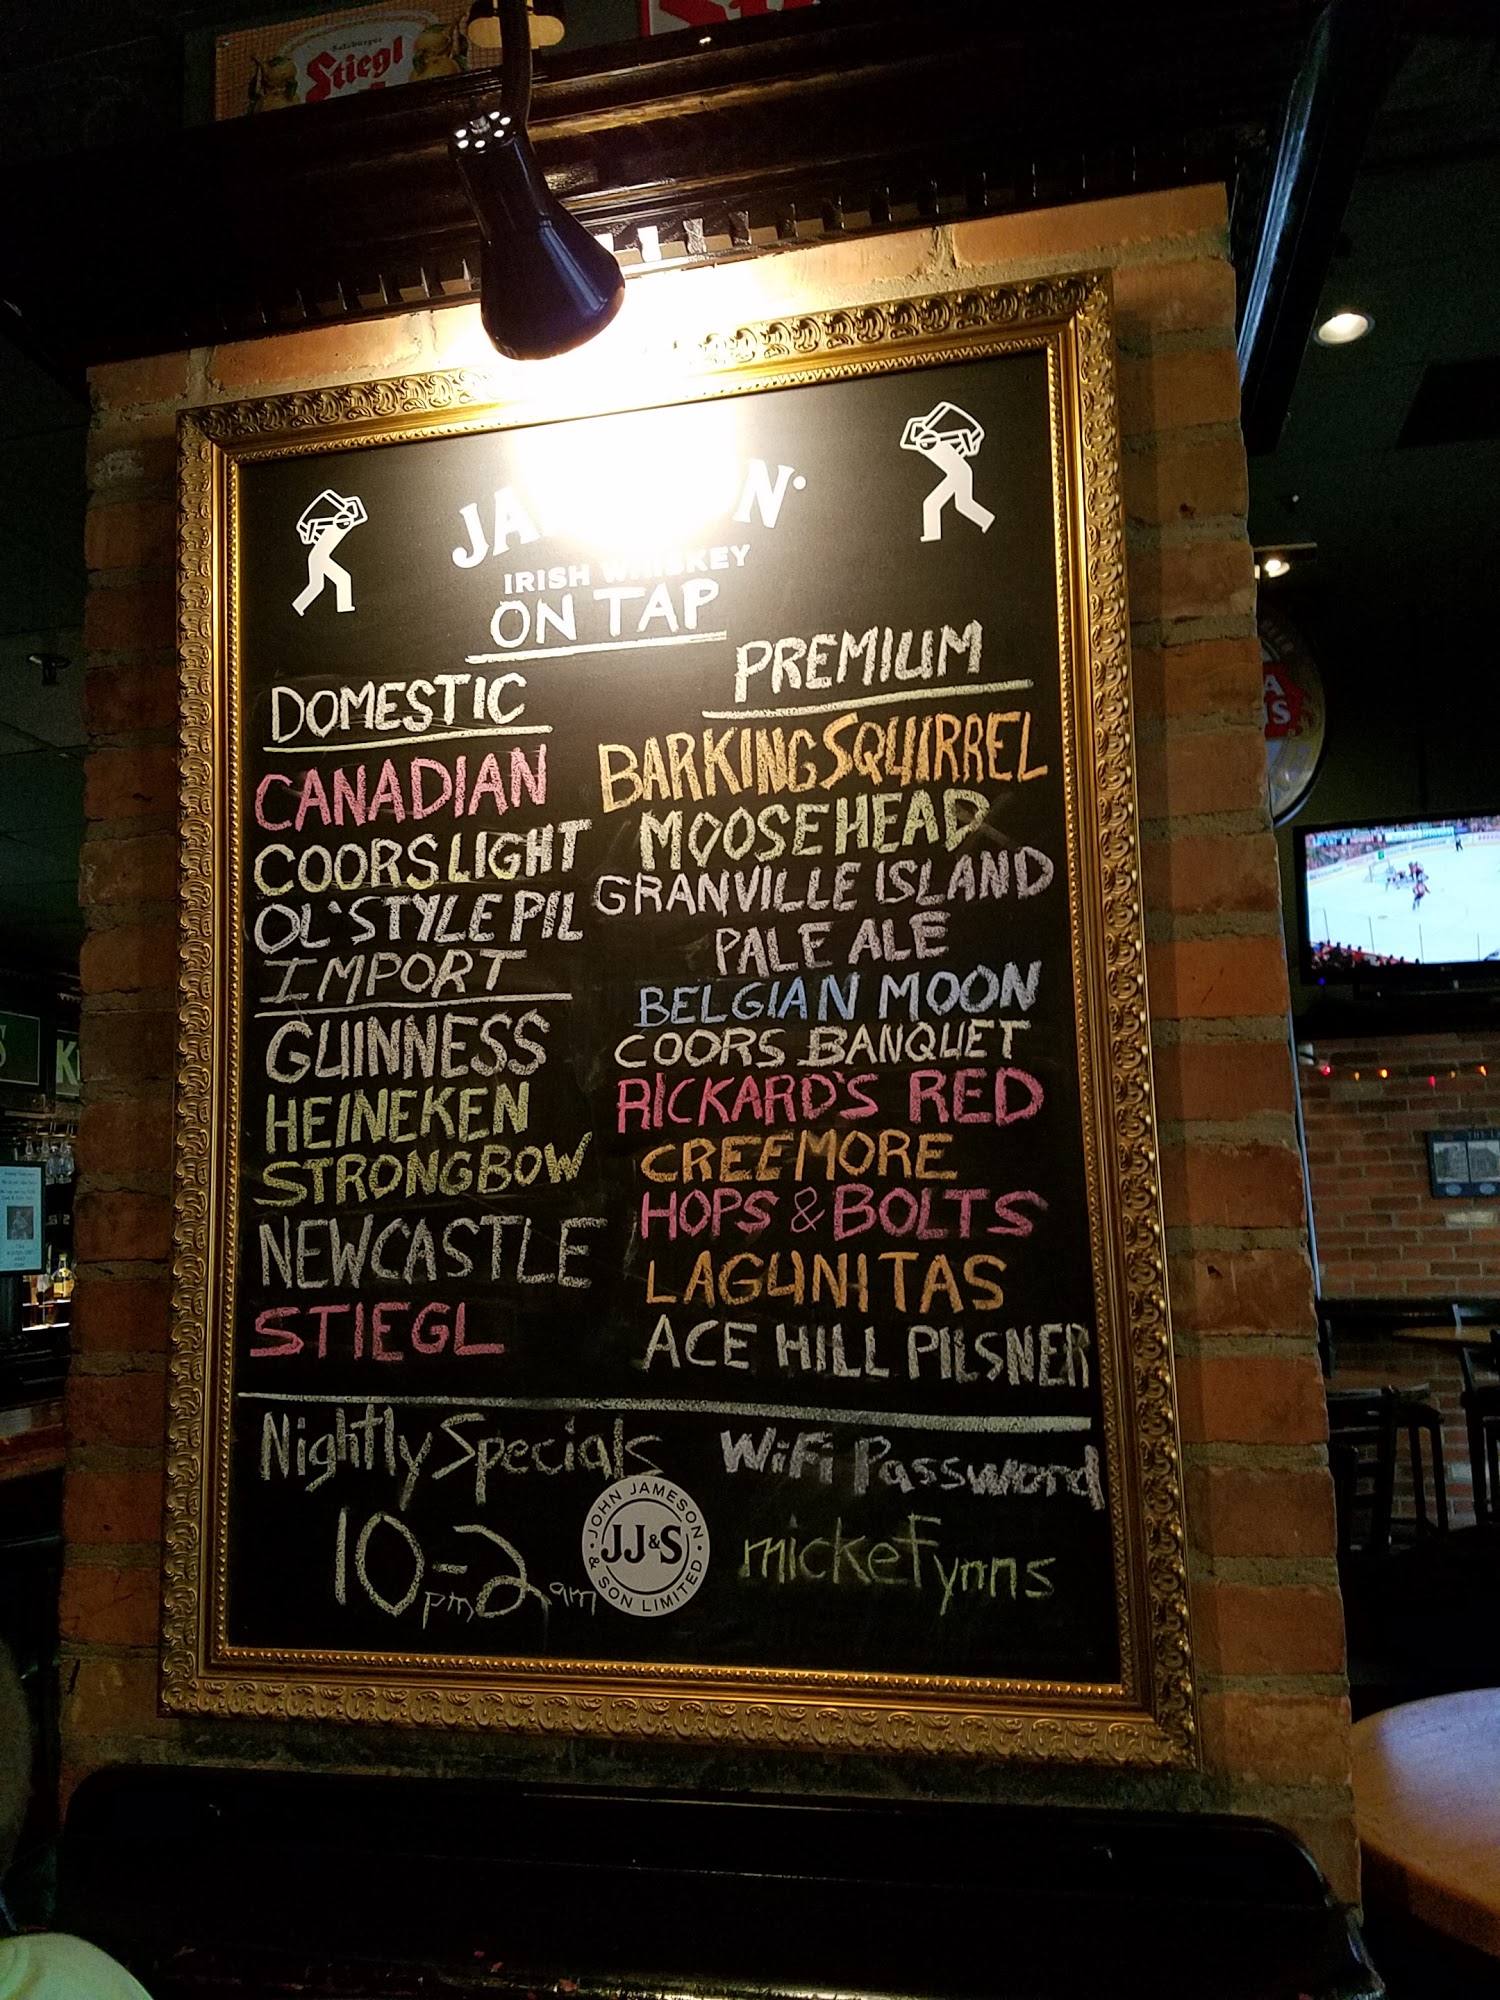 Salzburger
Stiegl
IRISH WHISKEY
ON TAP
DOMESTIC
CANADIAN
COORS LIGHT
OL' STYLE PIL
IMPORT
GUINNESS
HEINEKEN
STRONGBOW
NEWCASTLE
STIEGL
PREMIUM
BARKING SQUIRREL
MOOSEHEAD
GRANVILLE ISLAND
PALE ALE
BELGIAN MOON
COORS BANQUET
RICKARD'S RED
CREEMORE
HOPS & BOLTS
LAGUNITAS
ACE HILL PILSNER
Nightly Specials
10pm-2am
JOHN JAMESON
JJ&S
& SON LIMITED
WiFi Password
mickeFynns